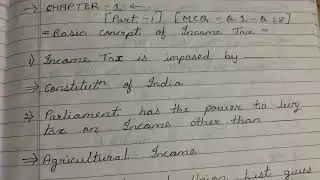 →) CHAPTER - 1 ←
[Part -1] [MCQ - Q.1 - Q.28]
= Basic concept of Income Tax =
1) Income Tax is imposed by
⇒) Constitutn of India
2) Parliament has the power to levy
tax on Income other than
⇒) Agricultural Income
Union List gives